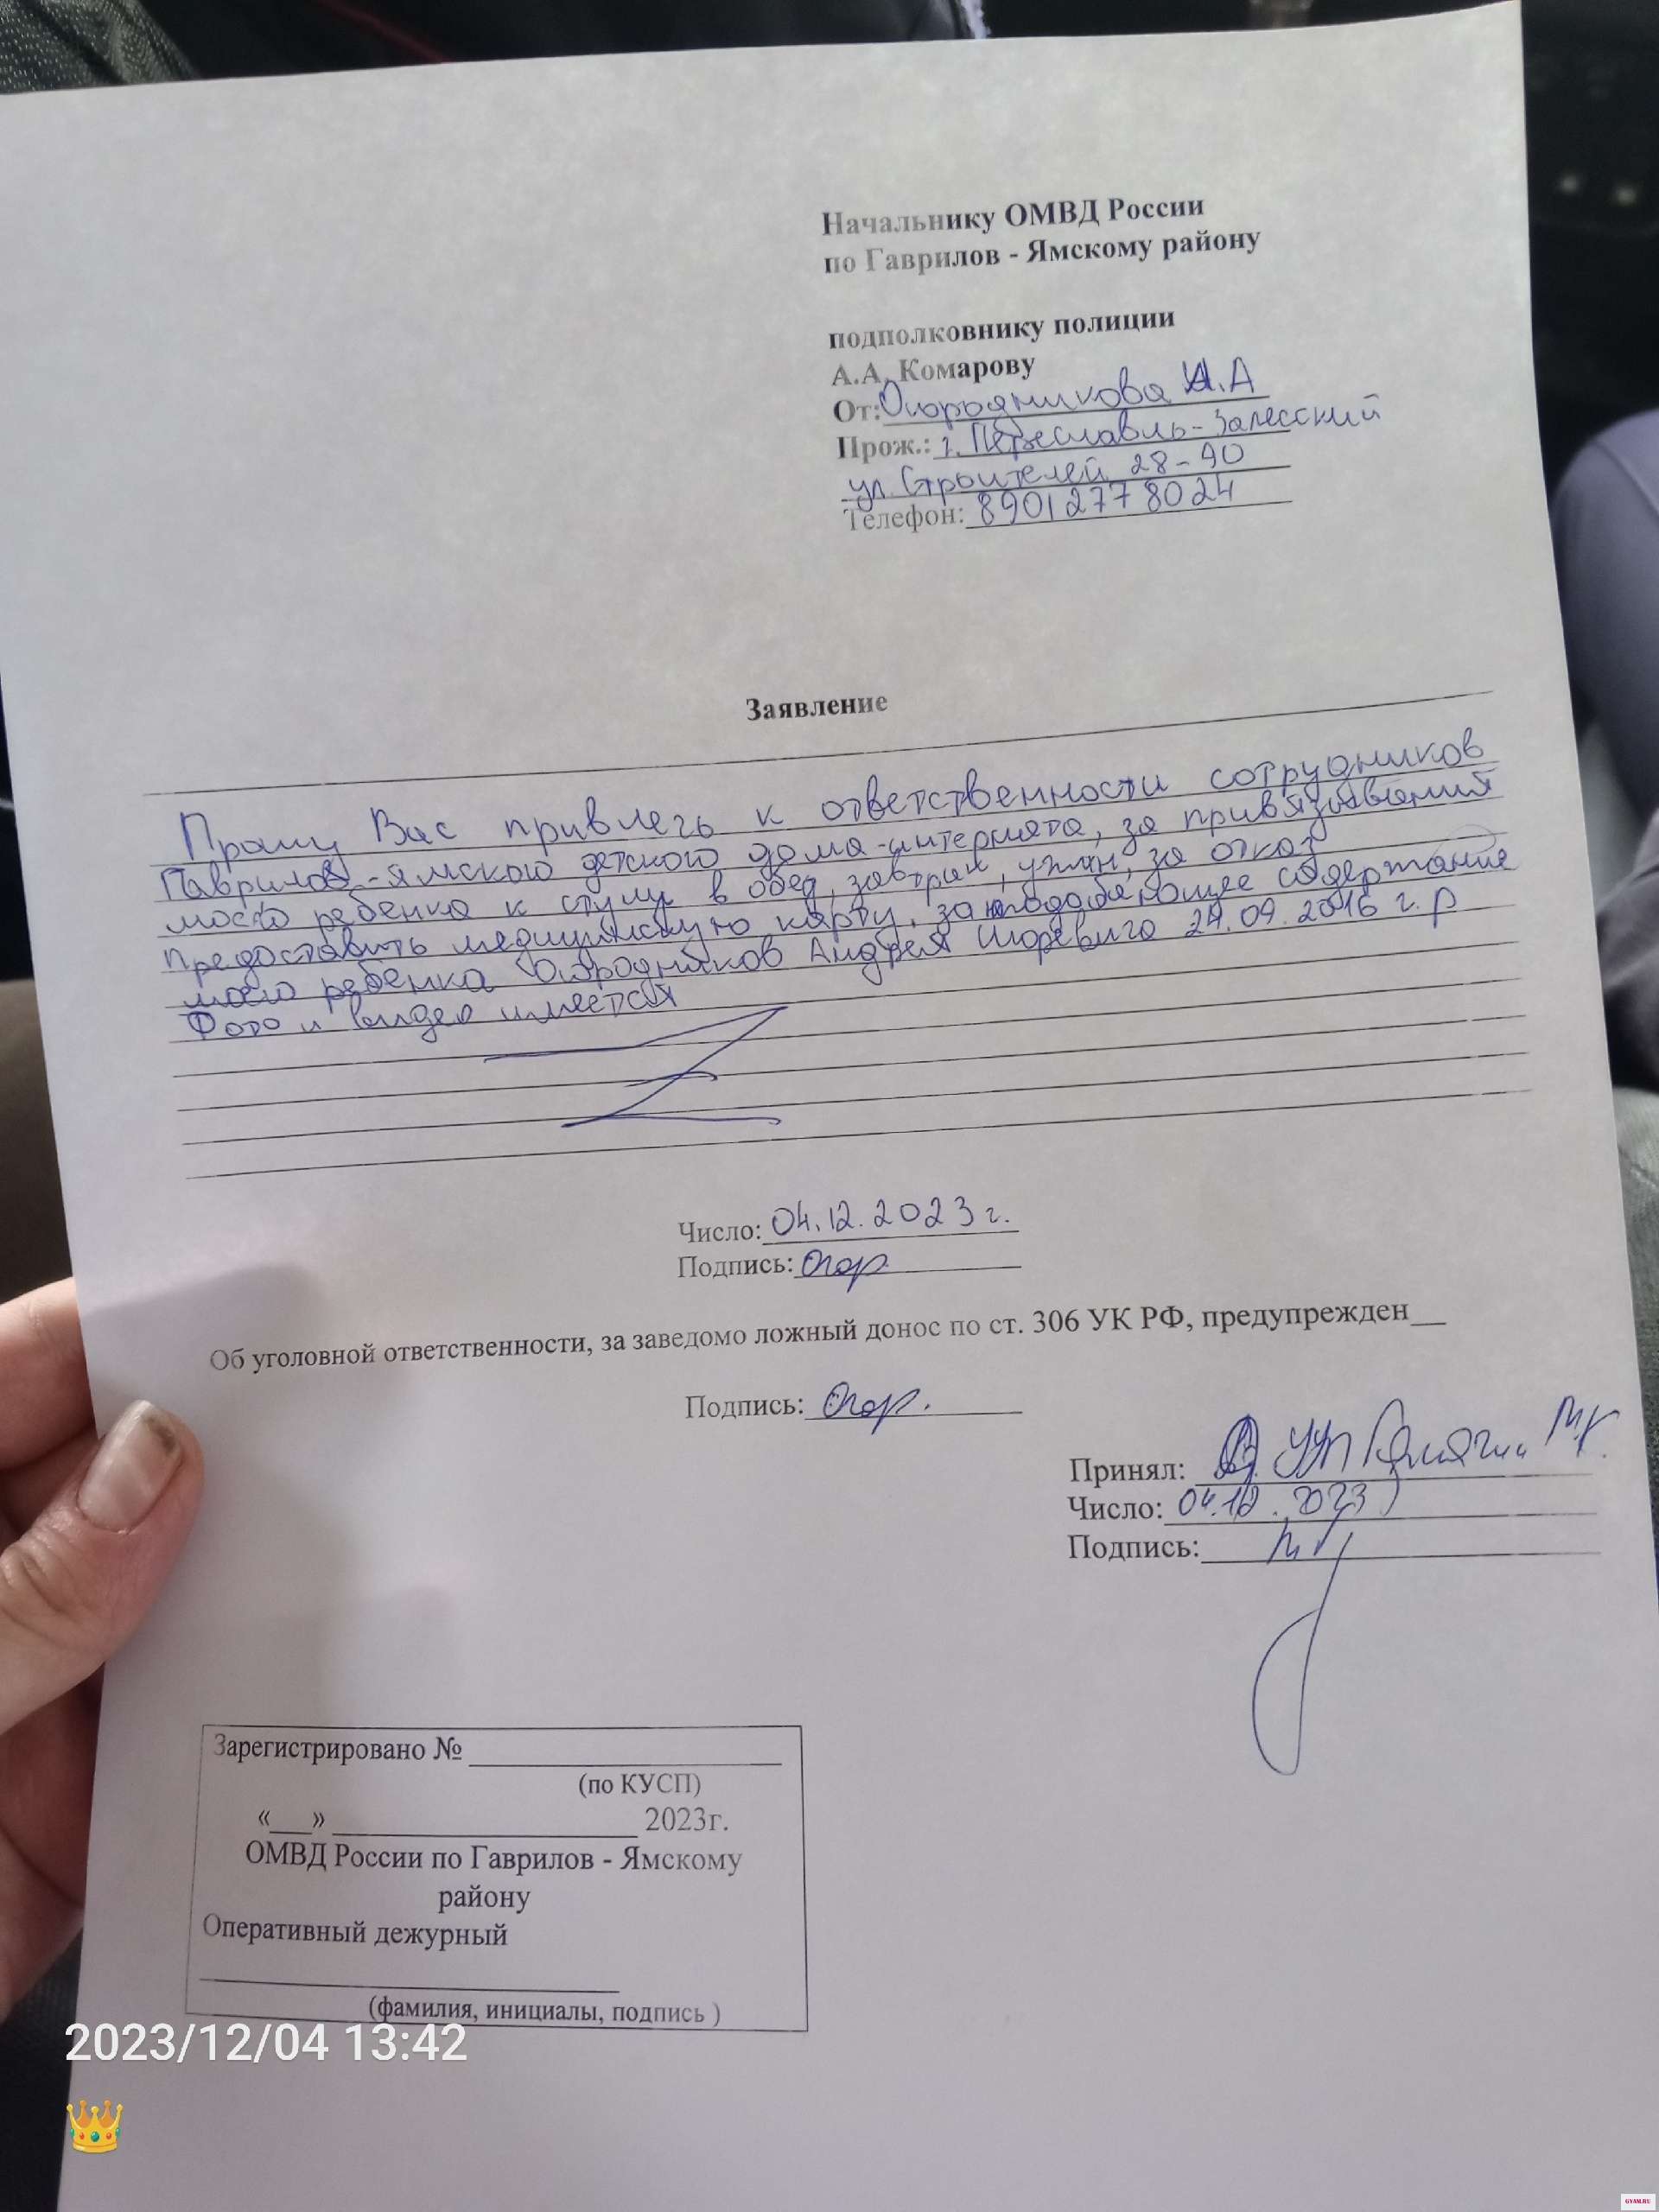 Начальнику ОМВД России
по Гаврилов - Ямскому району
подполковнику полиции
А.А. Комарову
От: Огородникова И.А
Прож.: г. Переславль-Залесский
ул. Строителей 28-90
Телефон: 89012778024
Заявление
Прошу Вас привлечь к ответственности сотрудников
Гаврилов-ямского детского дома-интерната, за привязывания
моего ребенка к стулу в обед, завтрак, ужин, за отказ
предоставить медицинскую карту, за неподобающее содержание
моего ребенка Огородников Андрея Игоревича 24.09.2016 г.р
Фото и видео имеется
Число: 04.12.2023 г.
Подпись: Огор.
Об уголовной ответственности, за заведомо ложный донос по ст. 306 УК РФ, предупрежден__
Подпись: Огор.
Принял: УУП
Число: 04.12.2023
Подпись:
Зарегистрировано № ____
(по КУСП)
«__» ____ 2023г.
ОМВД России по Гаврилов - Ямскому
району
Оперативный дежурный
(фамилия, инициалы, подпись )
2023/12/04 13:42
GYAM.RU